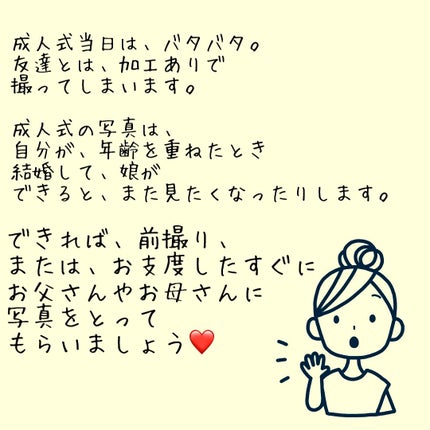 成人式当日は、バタバタ。
友達とは、加工ありで
撮ってしまいます。
成人式の写真は、
自分が、年齢を重ねたとき
結婚して、娘が
できると、また見たくなったりします。
できれば、前撮り、
または、お支度したすぐに
お父さんやお母さんに
写真をとって
もらいましょう❤️